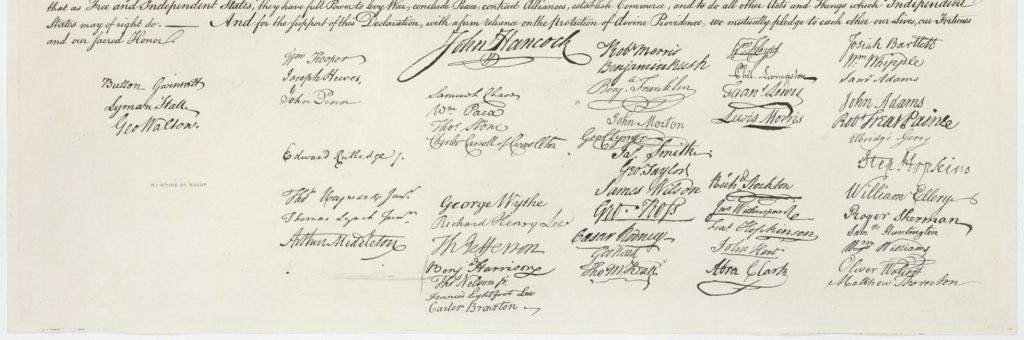 that as Free and Independent States, they have full Power to levy War, conclude Peace, contract Alliances, establish Commerce, and to do all other Acts and Things which Independent
States may of right do. — And for the support of this Declaration, with a firm reliance on the protection of divine Providence, we mutually pledge to each other our Lives, our Fortunes
and our sacred Honor.
Button Gwinnett
Lyman Hall
Geo Walton.
Wm Hooper
Joseph Hewes,
John Penn
Edward Rutledge /.
Thos Heyward Junr.
Thomas Lynch Junr.
Arthur Middleton
John Hancock
Samuel Chase
Wm Paca
Thos Stone
Charles Carroll of Carrollton
George Wythe
Richard Henry Lee
Th Jefferson
Benj Harrison
Thos Nelson jr.
Francis Lightfoot Lee
Carter Braxton
Robt Morris
Benjamin Rush
Benj. Franklin
John Morton
Geo Clymer
Jas. Smith
Geo. Taylor
James Wilson
Geo. Ross
Caesar Rodney
Geo Read
Tho M:Kean
Wm Floyd
Phil. Livingston
Frans. Lewis
Lewis Morris
Richd. Stockton
Jno Witherspoon
Fras. Hopkinson
John Hart
Abra Clark
Josiah Bartlett
Wm. Whipple
Saml Adams
John Adams
Robt Treat Paine
Elbridge Gerry
Step. Hopkins
William Ellery
Roger Sherman
Saml Huntington
Wm. Williams
Oliver Wolcott
Matthew Thornton